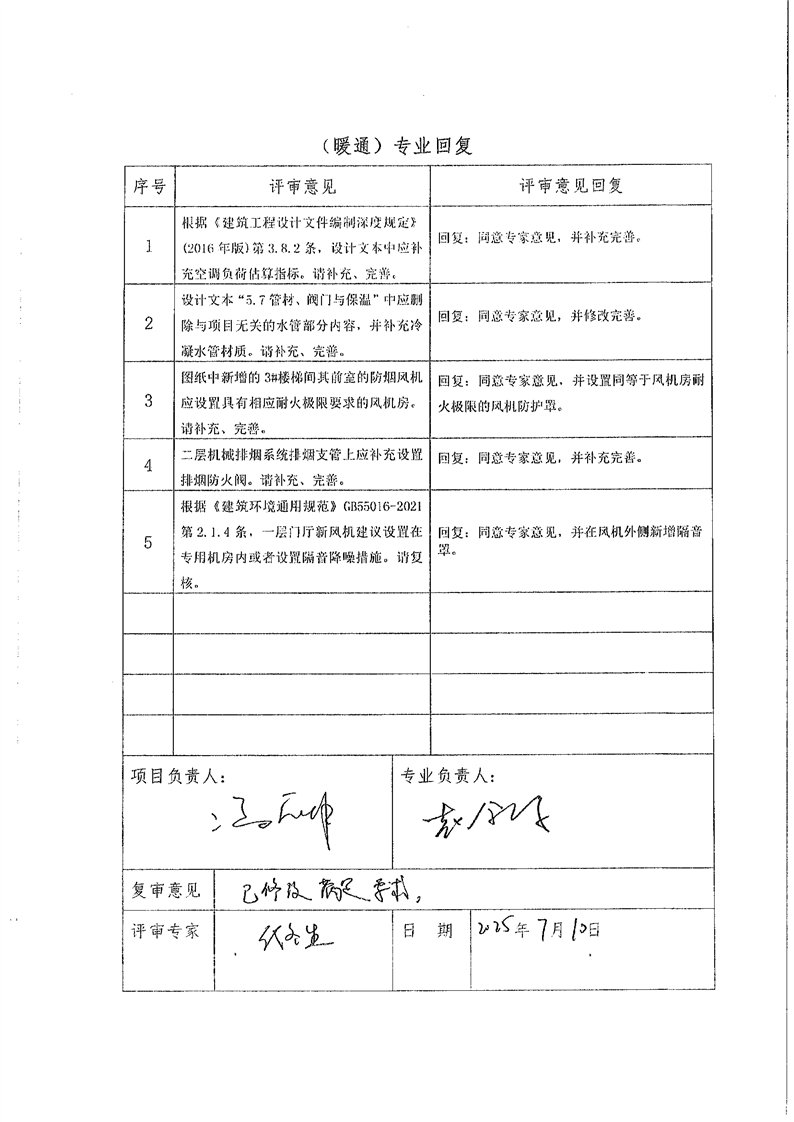 （暖通）专业回复
序号 评审意见 评审意见回复
1
根据《建筑工程设计文件编制深度规定》
(2016 年版)第 3.8.2 条，设计文本中应补
充空调负荷估算指标。请补充、完善。
回复：同意专家意见，并补充完善。
2
设计文本“5.7 管材、阀门与保温”中应删
除与项目无关的水管部分内容，并补充冷
凝水管材质。请补充、完善。
回复：同意专家意见，并修改完善。
3
图纸中新增的 3#楼梯间其前室的防烟风机
应设置具有相应耐火极限要求的风机房。
请补充、完善。
回复：同意专家意见，并设置同等于风机房耐
火极限的风机防护罩。
4
二层机械排烟系统排烟支管上应补充设置
排烟防火阀。请补充、完善。
回复：同意专家意见，并补充完善。
5
根据《建筑环境通用规范》GB55016-2021
第 2.1.4 条，一层门厅新风机建议设置在
专用机房内或者设置隔音降噪措施。请复
核。
回复：同意专家意见，并在风机外侧新增隔音
罩。
项目负责人： 专业负责人：
复审意见 已修改 满足 要求。
评审专家 日 期 2025年 7月10日